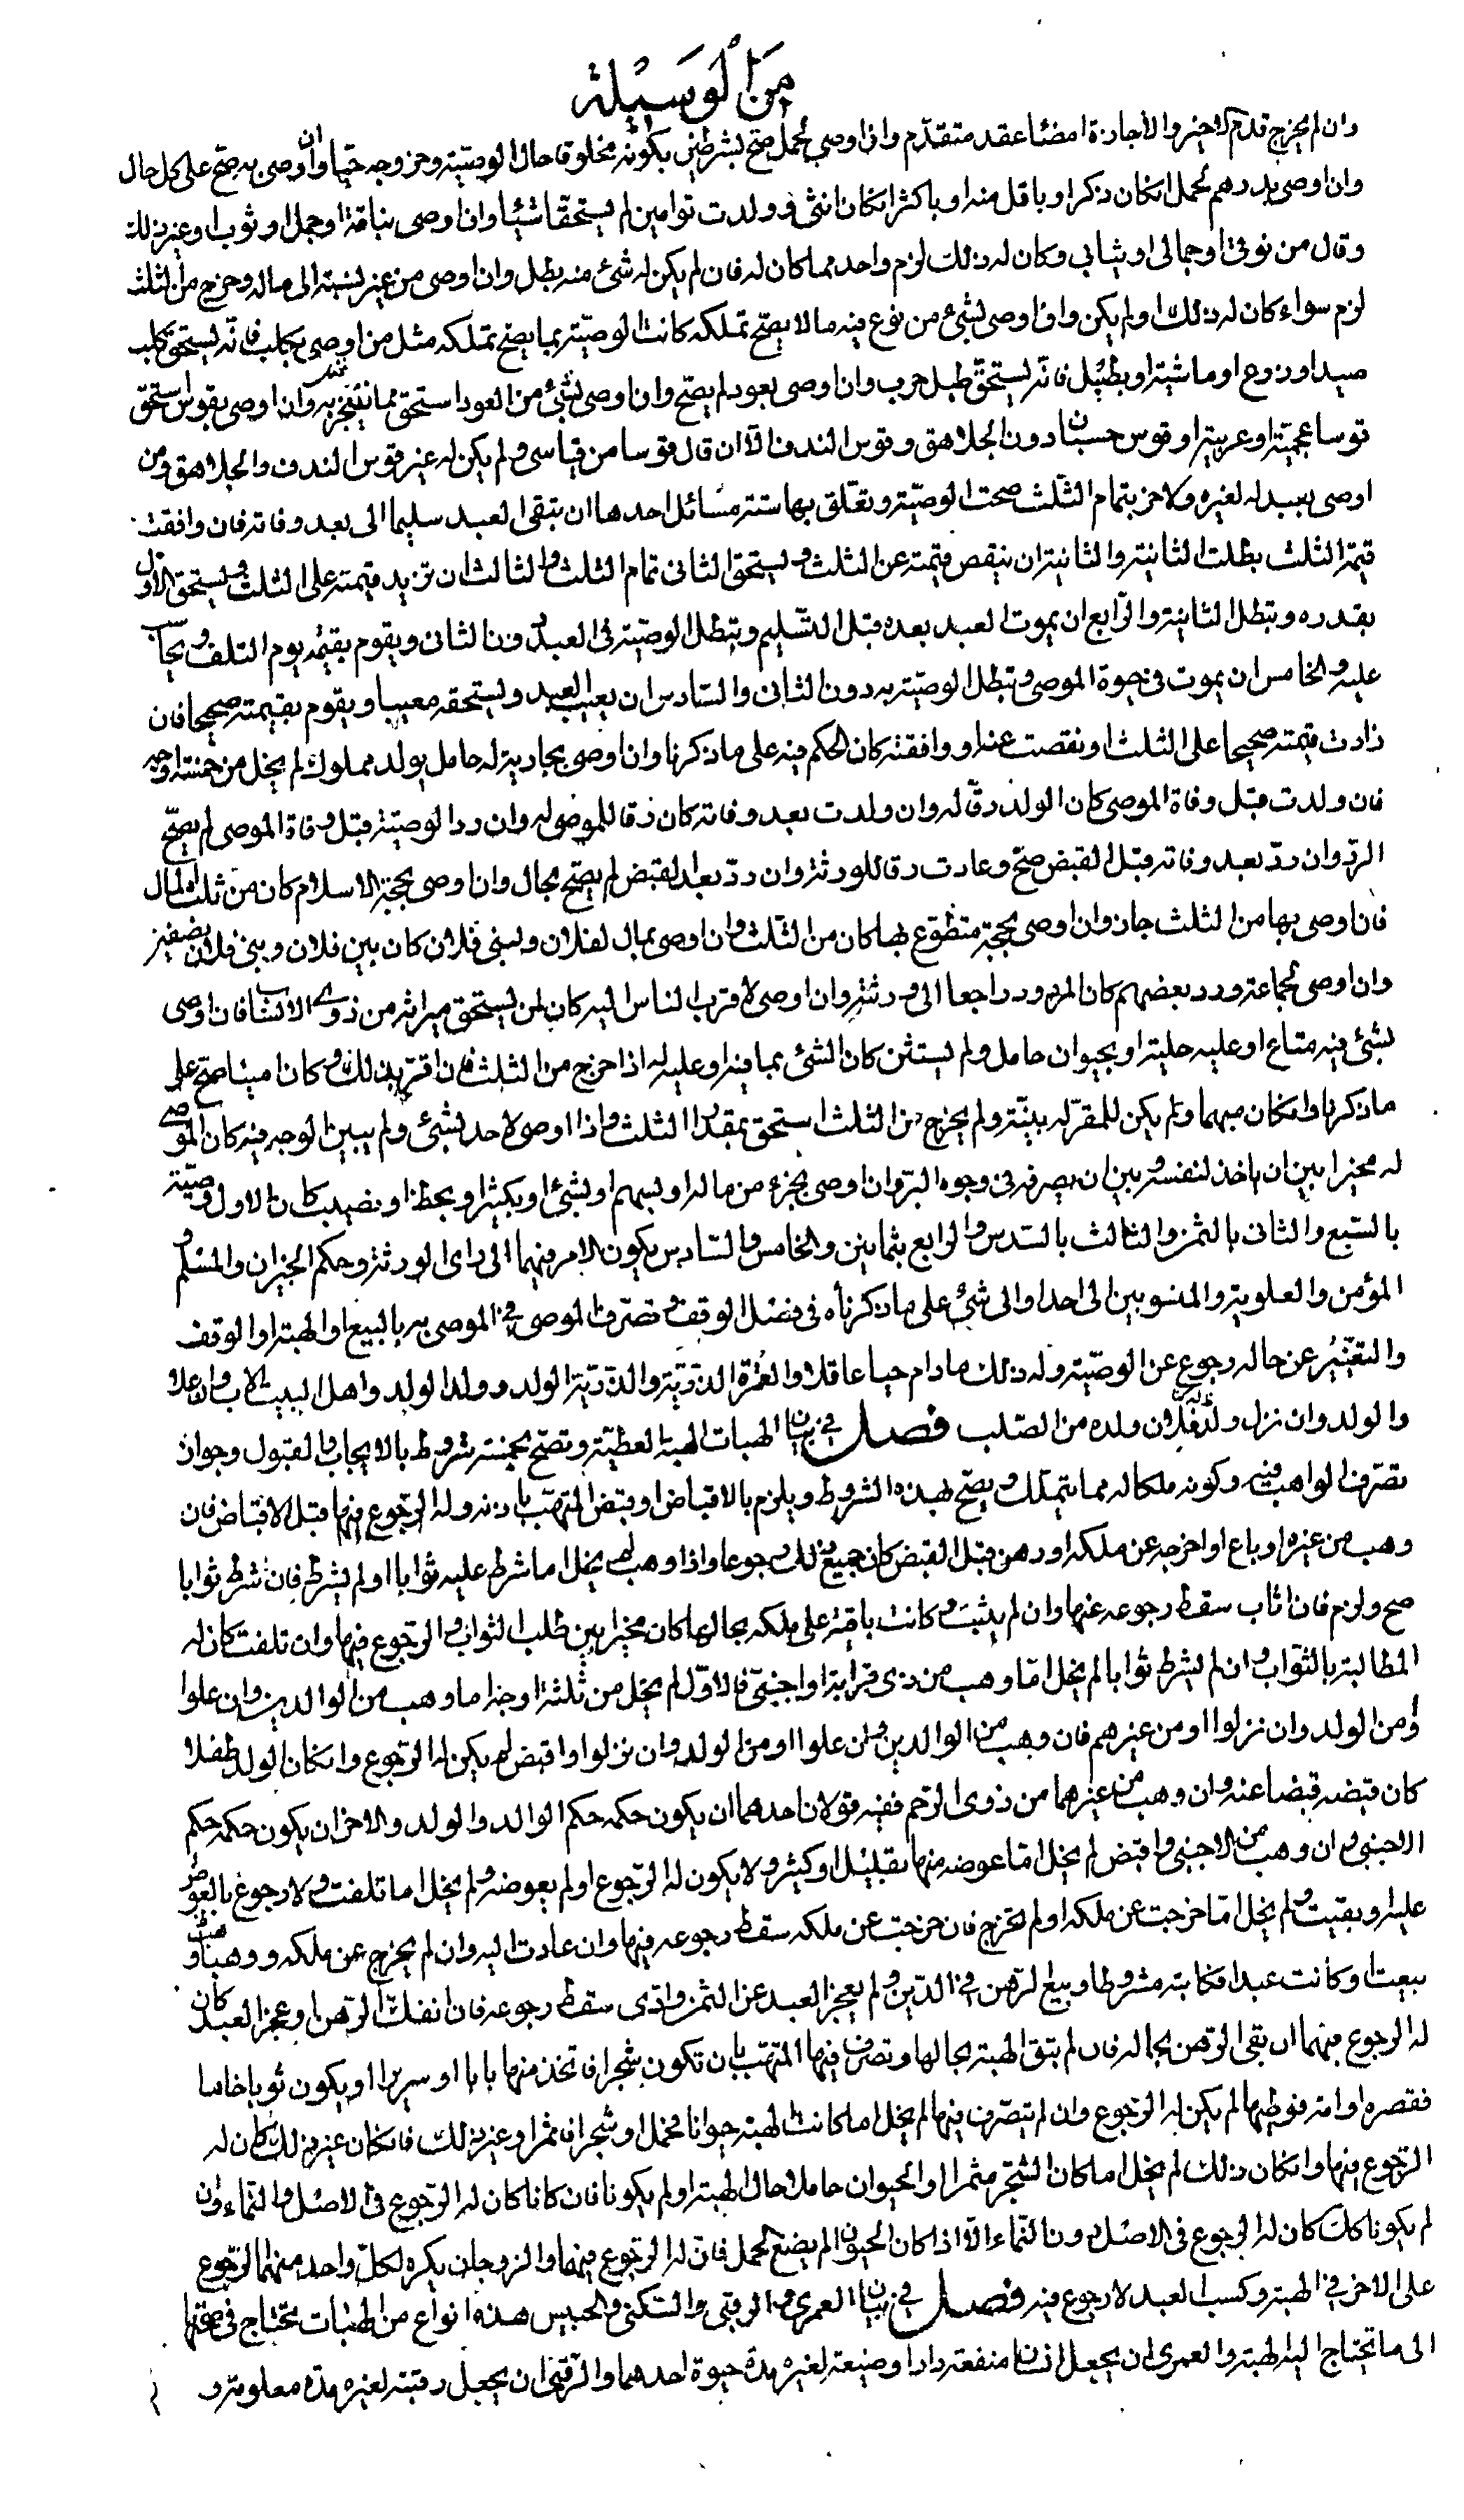 من الوسيلة
وان لم يخرج قدم الاخير والاجازة امضاء عقد متقدم واذا اوصى بحمل صح بشرطين بكونه مخلوقا حال الوصية وخروجه حيا وان اوصى به صح على كل حال
وان اوصى بدرهم لحمل انكان ذكرا وباقل منه او باكثر انكان انثى وولدت توامين لم يستحقا شيئا وان اوصى بناقة او جمل او ثوب او غير ذلك
وقال من نوقي او جمالي او ثيابي وكان له ذلك لزم واحد مما كان له فان لم يكن له شئ منه بطل وان اوصى من غير نسبته الى ماله وخرج من الثلث
لزم سواء كان له ذلك او لم يكن واذا اوصى بشئ من نوع فيه ما لا يصح تملكه كانت الوصية بما يصح تملكه مثل من اوصى بكلب فانه يستحق كلب
صيد او زرع او ماشية او بطبل فانه يستحق طبل حرب وان اوصى بعود لم يصح وان اوصى بشئ من العود استحق مما يتبخر به وان اوصى بقوس استحق
قوسا عجمية او عربية او قوس حسبان دون الجلاهق وقوس الندف الا ان قال قوسا من قياسي ولم يكن له غير قوس الندف والجلاهق ومن
اوصى بعبد له لغيره ولاخر بتمام الثلث صحت الوصية وتعلق بها ستة مسائل احدها ان يبقى العبد سليما الى بعد وفاته فان وافقت
قيمته الثلث بطلت الثانية والثانية ان ينقص قيمته عن الثلث ويستحق الثاني تمام الثلث والثالث ان تزيد قيمته على الثلث ويستحق الاول
بقدره وتبطل الثانية والرابع ان يموت العبد بعده قبل التسليم وتبطل الوصية في العبد دون الثاني ويقوم بقيمة يوم التلف
عليه والخامس ان يموت في حيوة الموصي وتبطل الوصية به دون الثاني والسادس ان يعيب العبد ويستحقه معيبا ويقوم بقيمته صحيحا فان
زادت قيمته صحيحا على الثلث او نقصت عنه او وافقته كان الحكم فيه على ما ذكرنا وان اوصى بجارية له حامل بولد مملوك لم يخل من خمسة اوجه
فان ولدت قبل وفاة الموصي كان الولد رقا له وان ولدت بعد وفاته كان رقا للموصى له وان رد الوصية قبل وفاة الموصي لم يصح
الرد وان رد بعد وفاته قبل القبض صح وعادت رقا للورثة وان رد بعد القبض لم يصح بحال وان اوصى بحجة الاسلام كان من ثلث المال
فان اوصى بها من الثلث جاز وان اوصى بحجة متطوع بها كان من الثلث وان اوصى بمال لفلان ولبني فلان كان بين فلان وبني فلان نصفين
وان اوصى لجماعة ورد بعضهم كان المردود راجعا الى ورثته وان اوصى لاقرب الناس اليه كان لمن يستحق ميراثه من ذوي الانساب فان اوصى
بشئ فيه متاع او عليه حلية او بحيوان حامل ولم يستثن كان الشئ بما فيه او عليه له اذا خرج من الثلث فان اقر بذلك وكان امينا صح على
ما ذكرنا وانكان مبهما ولم يكن للمقر له بينة ولم يخرج من الثلث استحق بمقدار الثلث واذا اوصى لاحد بشئ ولم يبين الوجه فيه كان الموصى
له مخيرا بين ان ياخذ لنفسه وبين ان يصرفه في وجوه البر وان اوصى بجزء من ماله او بسهم او بشئ او بكثير او بحظ او نصيب كان الاول وصية
بالسبع والثاني بالثمن والثالث بالسدس والرابع بثمانين والخامس والسادس يكون الامر فيهما الى راى الورثة وحكم الجيران والمسلم و
المؤمن والعلوية والمنسوبين الى احد او الى شئ على ما ذكرناه في فصل الوقف وتصرف الموصي في الموصى به بالبيع او الهبة او الوقف
والتغيير عن حاله رجوع عن الوصية وله ذلك ما دام حيا عاقلا والعترة الذرية والذرية الولد وولد الولد واهل البيت الاب وان علا
والولد وان نزل وولد فلان ولده من الصلب فصل في بيان الهبات الهبة العطية وتصح بخمسة شروط بالايجاب والقبول وجواز
تصرف الواهب فيه وكونه ملكا له مما يتملك ويصح بهذه الشروط ويلزم بالاقباض او قبض المتهب باذنه وله الرجوع فيها قبل الاقباض فان
وهب من غيره او باع او اخرجه عن ملكه او رهن قبل القبض كان جميع ذلك رجوعا واذا وهب لم يخل اما شرط عليه ثوابا او لم يشرط فان شرط ثوابا
صح ولزم فان اثاب سقط رجوعه عنها وان لم يثبت وكانت باقية على ملكه بحالها كان مخيرا بين طلب الثواب والرجوع فيها وان تلفت كان له
المطالبة بالثواب وان لم يشرط ثوابا لم يخل اما وهب من ذي قرابة او اجنبي فالاول لم يخل من ثلثة اوجه اما وهب من الوالدين وان علوا
او من الولد وان نزلوا او من غيرهم فان وهب من الوالدين وان علوا او من الولد وان نزلوا واقبض لم يكن له الرجوع وانكان الولد طفلا
كان قبضه قبضا عنه وان وهب من غيرهما من ذوي الرحم ففيه قولان احدهما ان يكون حكمه حكم الوالد والولد والاخر ان يكون حكمه حكم
الاجنبي وان وهب من الاجنبي واقبض لم يخل اما عوضه منها بقليل او كثير ولا يكون له الرجوع او لم يعوضه ولم يخل اما تلفت ولا رجوع بالعوض
عليه او بقيت ولم يخل اما خرجت عن ملكه او لم تخرج فان خرجت عن ملكه سقط رجوعه فيها وان عادت اليه وان لم يخرج عن ملكه ورهنت او
بيعت او كانت عبدا فكاتبه مشروطا وبيع الرهن في الدين ولم يعجز العبد عن الثمن وادى سقط رجوعه فان انفك الرهن او عجز العبد كان
له الرجوع فيهما ان بقي الرهن بحاله فان لم تبق الهبة بحالها وتصرف فيها المتهب بان تكون شجرا فاتخذ منها بابا او سريرا او يكون ثوبا خاما
فقصره او امة فوطيها لم يكن له الرجوع وان لم يتصرف فيها لم يخل اما كانت الهبة حيوانا فحمل او شجرا فاثمر او غير ذلك فانكان غير ذلك كان له
الرجوع فيها وانكان ذلك لم يخل اما كان الشجر مثمرا او الحيوان حاملا حال الهبة او لم يكونا فان كانا كان له الرجوع في الاصل والنماء وان
لم يكونا كك كان له الرجوع في الاصل دون النماء الا اذا كان الحيوان لم يضع الحمل فان له الرجوع فيهما والزوجان يكره لكل واحد منهما الرجوع
على الاخر في الهبة وكسب العبد لا رجوع فيه فصل في بيان العمرى والرقبى والسكنى والحبيس هذه انواع من الهبات تحتاج في صحتها
الى ما تحتاج اليه الهبة والعمرى ان يجعل انسان منفعة دار او ضيعة لغيره مدة حيوة احدهما والرقبى ان يجعل رقبته لغيره مدة معلومة و